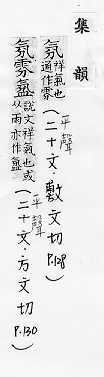 集韻
氛 祥氣也
通作雰
平聲
(二十文·敷文切 P.128)
氛雰 說文祥氣也或
从雨亦作
平聲
(二十文·方文切 P.130)